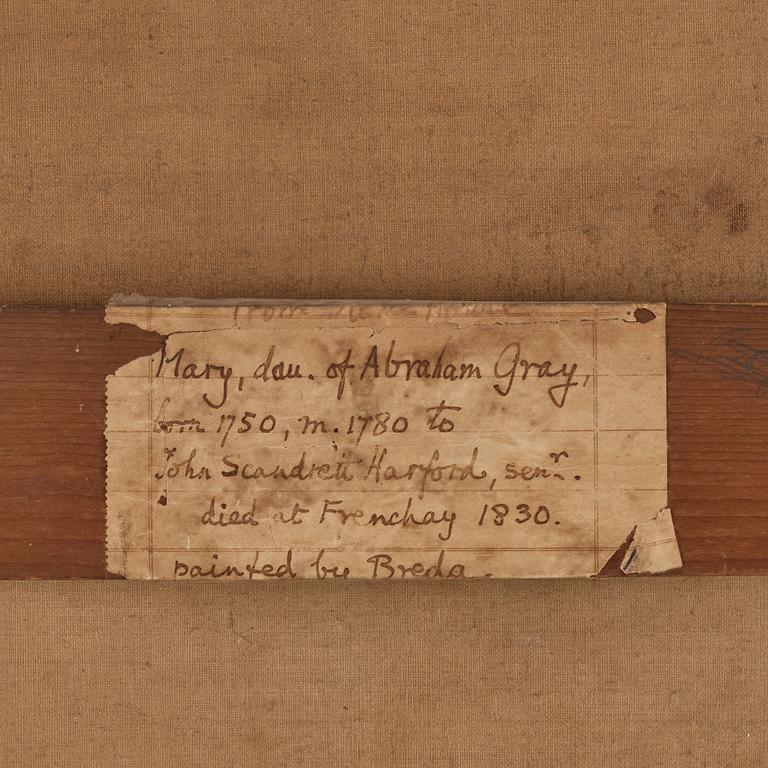 Mary, dau. of Abraham Gray,
born 1750, m. 1780 to
John Scandrett Harford, senr.
died at Frenchay 1830.
painted by Breda.